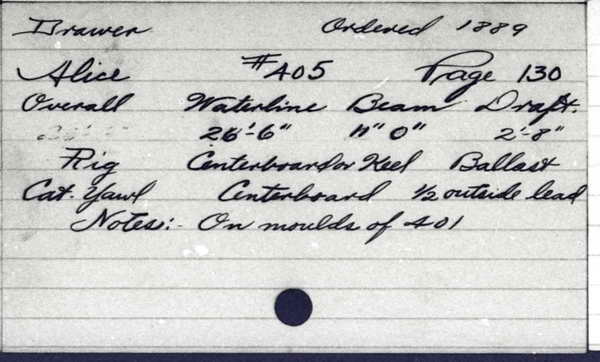 Drawer Ordered 1889
Alice #405 Page 130
Overall Waterline Beam Draft.
26'-6" 11" 0" 2'-8"
Rig Centerboard or Keel Ballast
Cat. Yawl Centerboard 1/2 outside lead
Notes:- On moulds of 401